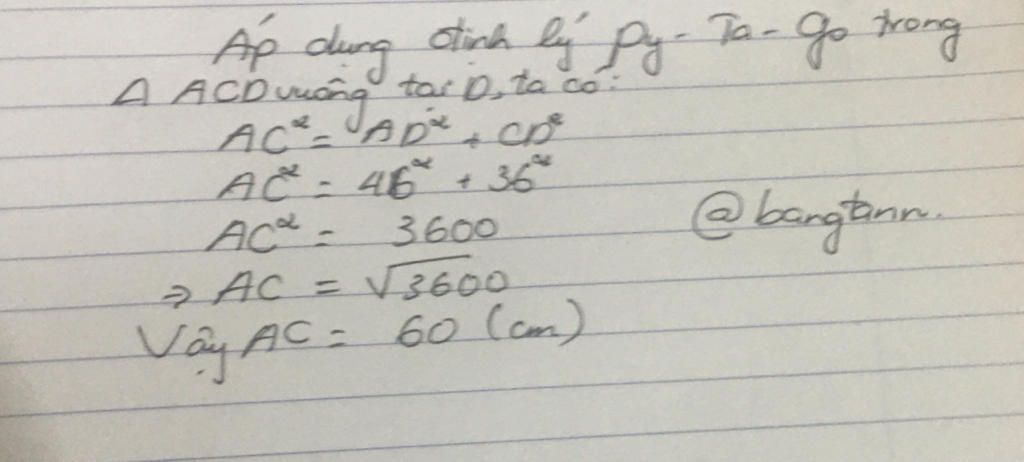 Áp dụng định lý Py-Ta-go trong
Δ ACD vuông tại D, ta có:
AC² = AD² + CD²
AC² = 46² + 36²
AC² = 3600
@bangtann.
⇒ AC = √3600
Vậy AC = 60 (cm)